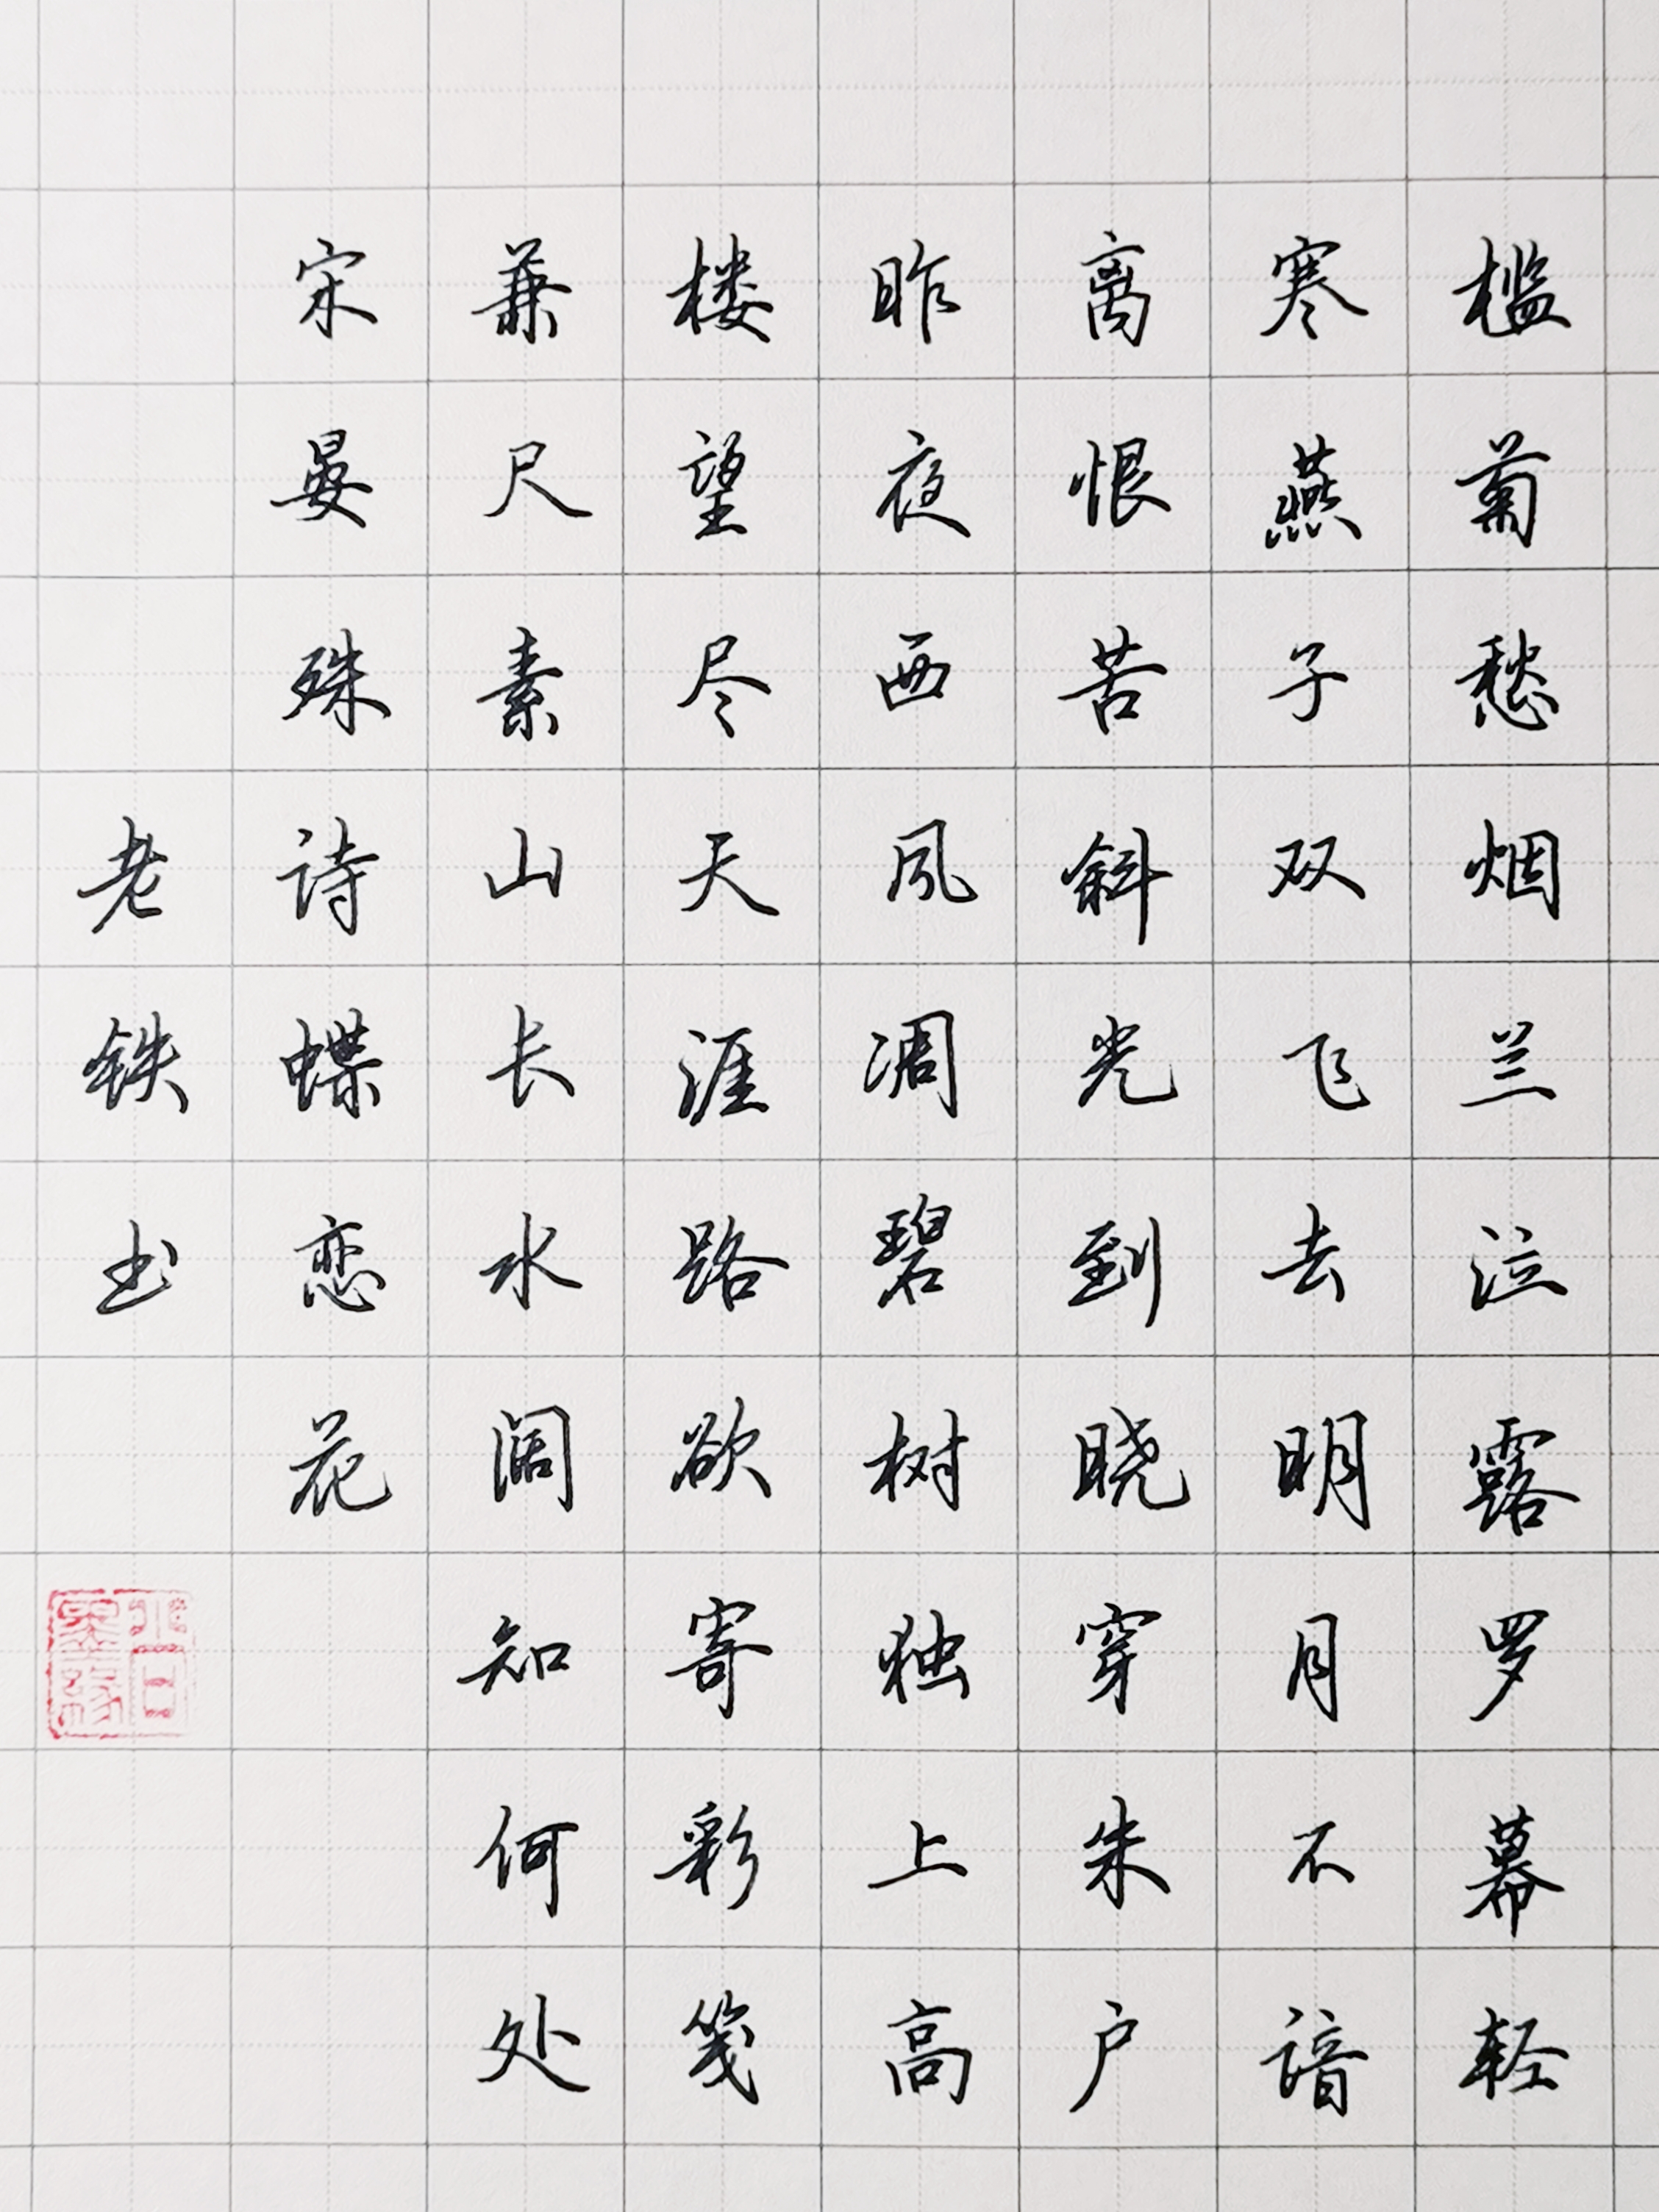 槛菊愁烟兰泣露罗幕轻
寒燕子双飞去明月不谙
离恨苦斜光到晓穿朱户
昨夜西风凋碧树独上高
楼望尽天涯路欲寄彩笺
兼尺素山长水阔知何处
宋晏殊诗蝶恋花
老铁书